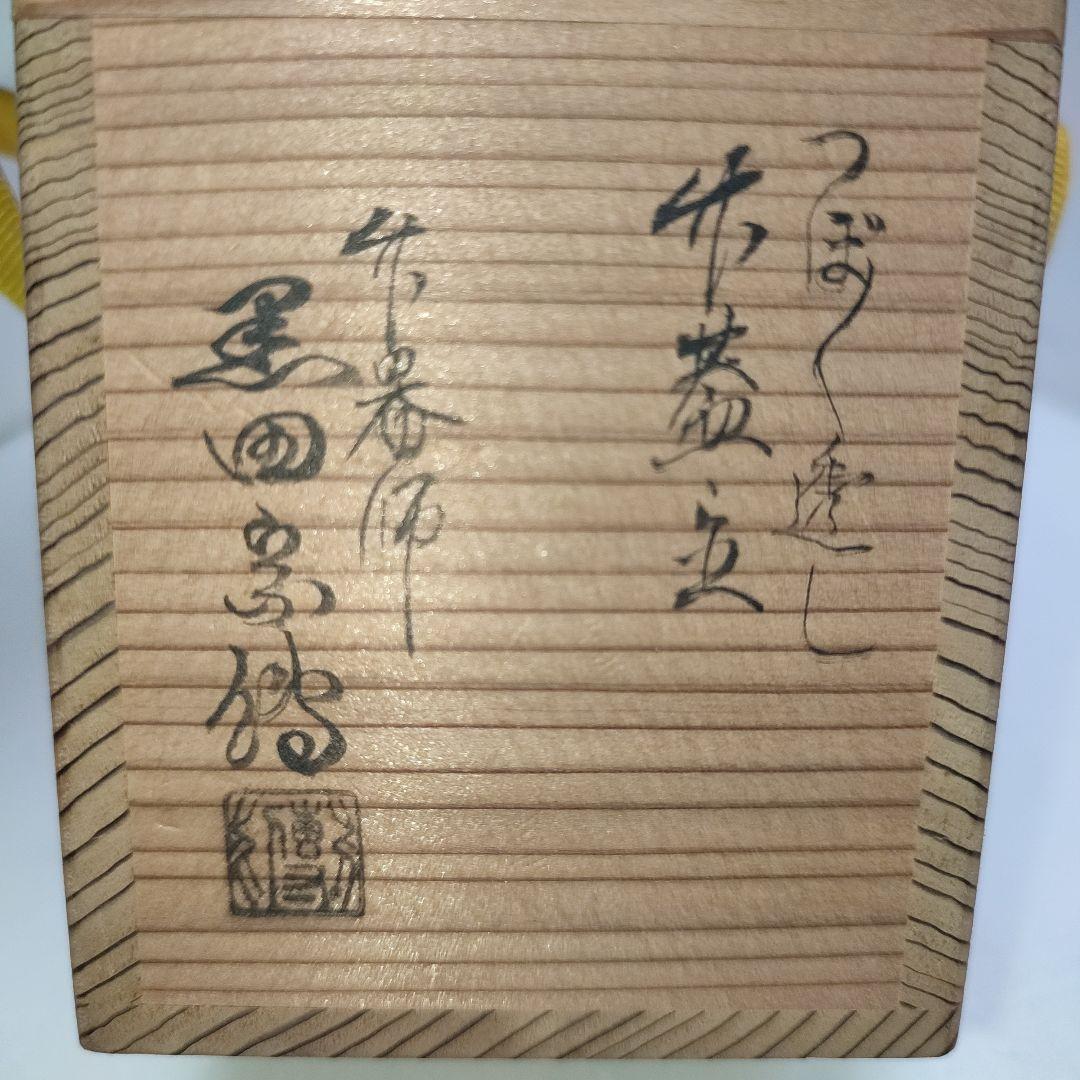 つぼ〱透し
竹蓋置
竹器師
黒田宗傳